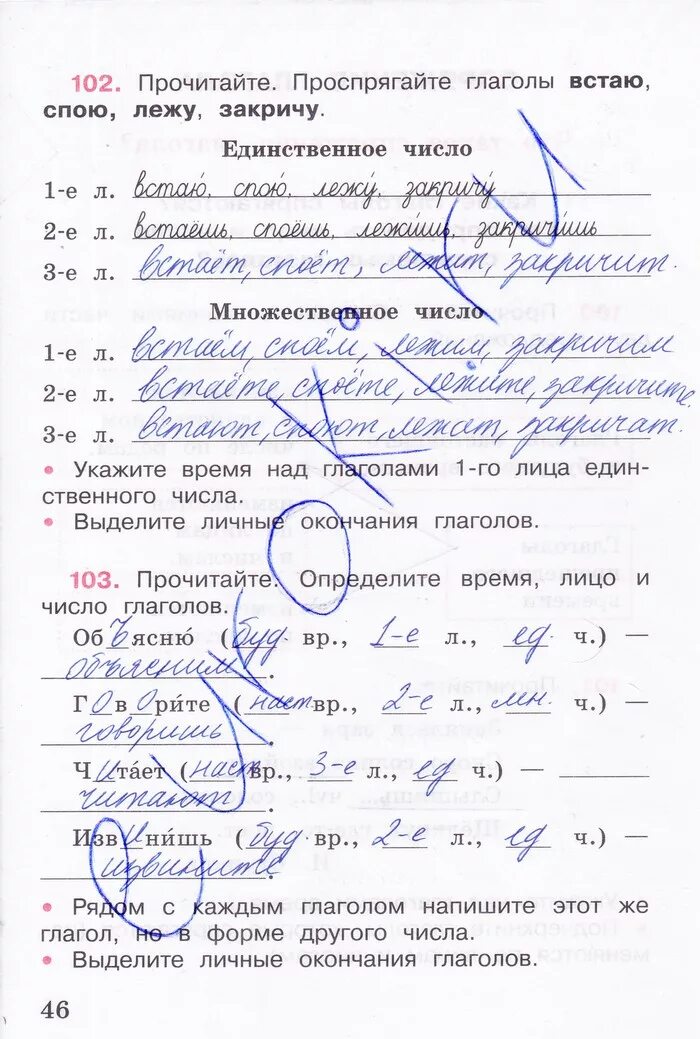 102. Прочитайте. Проспрягайте глаголы встаю,
спою, лежу, закричу.
Единственное число
1-е л. встаю, спою, лежу, закричу
2-е л. встаёшь, споёшь, лежишь, закричишь
3-е л. встаёт, споёт, лежит, закричит.
Множественное число
1-е л. встаём, споём, лежим, закричим
2-е л. встаёте, споёте, лежите, закричите
3-е л. встают, споют, лежат, закричат.
• Укажите время над глаголами 1-го лица един-
ственного числа.
• Выделите личные окончания глаголов.
103. Прочитайте. Определите время, лицо и
число глаголов.
Объясню (буд вр., 1-е л., ед ч.) —
объясним.
Говорите (наст вр., 2-е л., мн. ч.) —
говоришь.
Читает (наст вр., 3-е л., ед ч.) —
читают.
Извинишь (буд вр., 2-е л., ед ч.) —
извините.
• Рядом с каждым глаголом напишите этот же
глагол, но в форме другого числа.
• Выделите личные окончания глаголов.
46